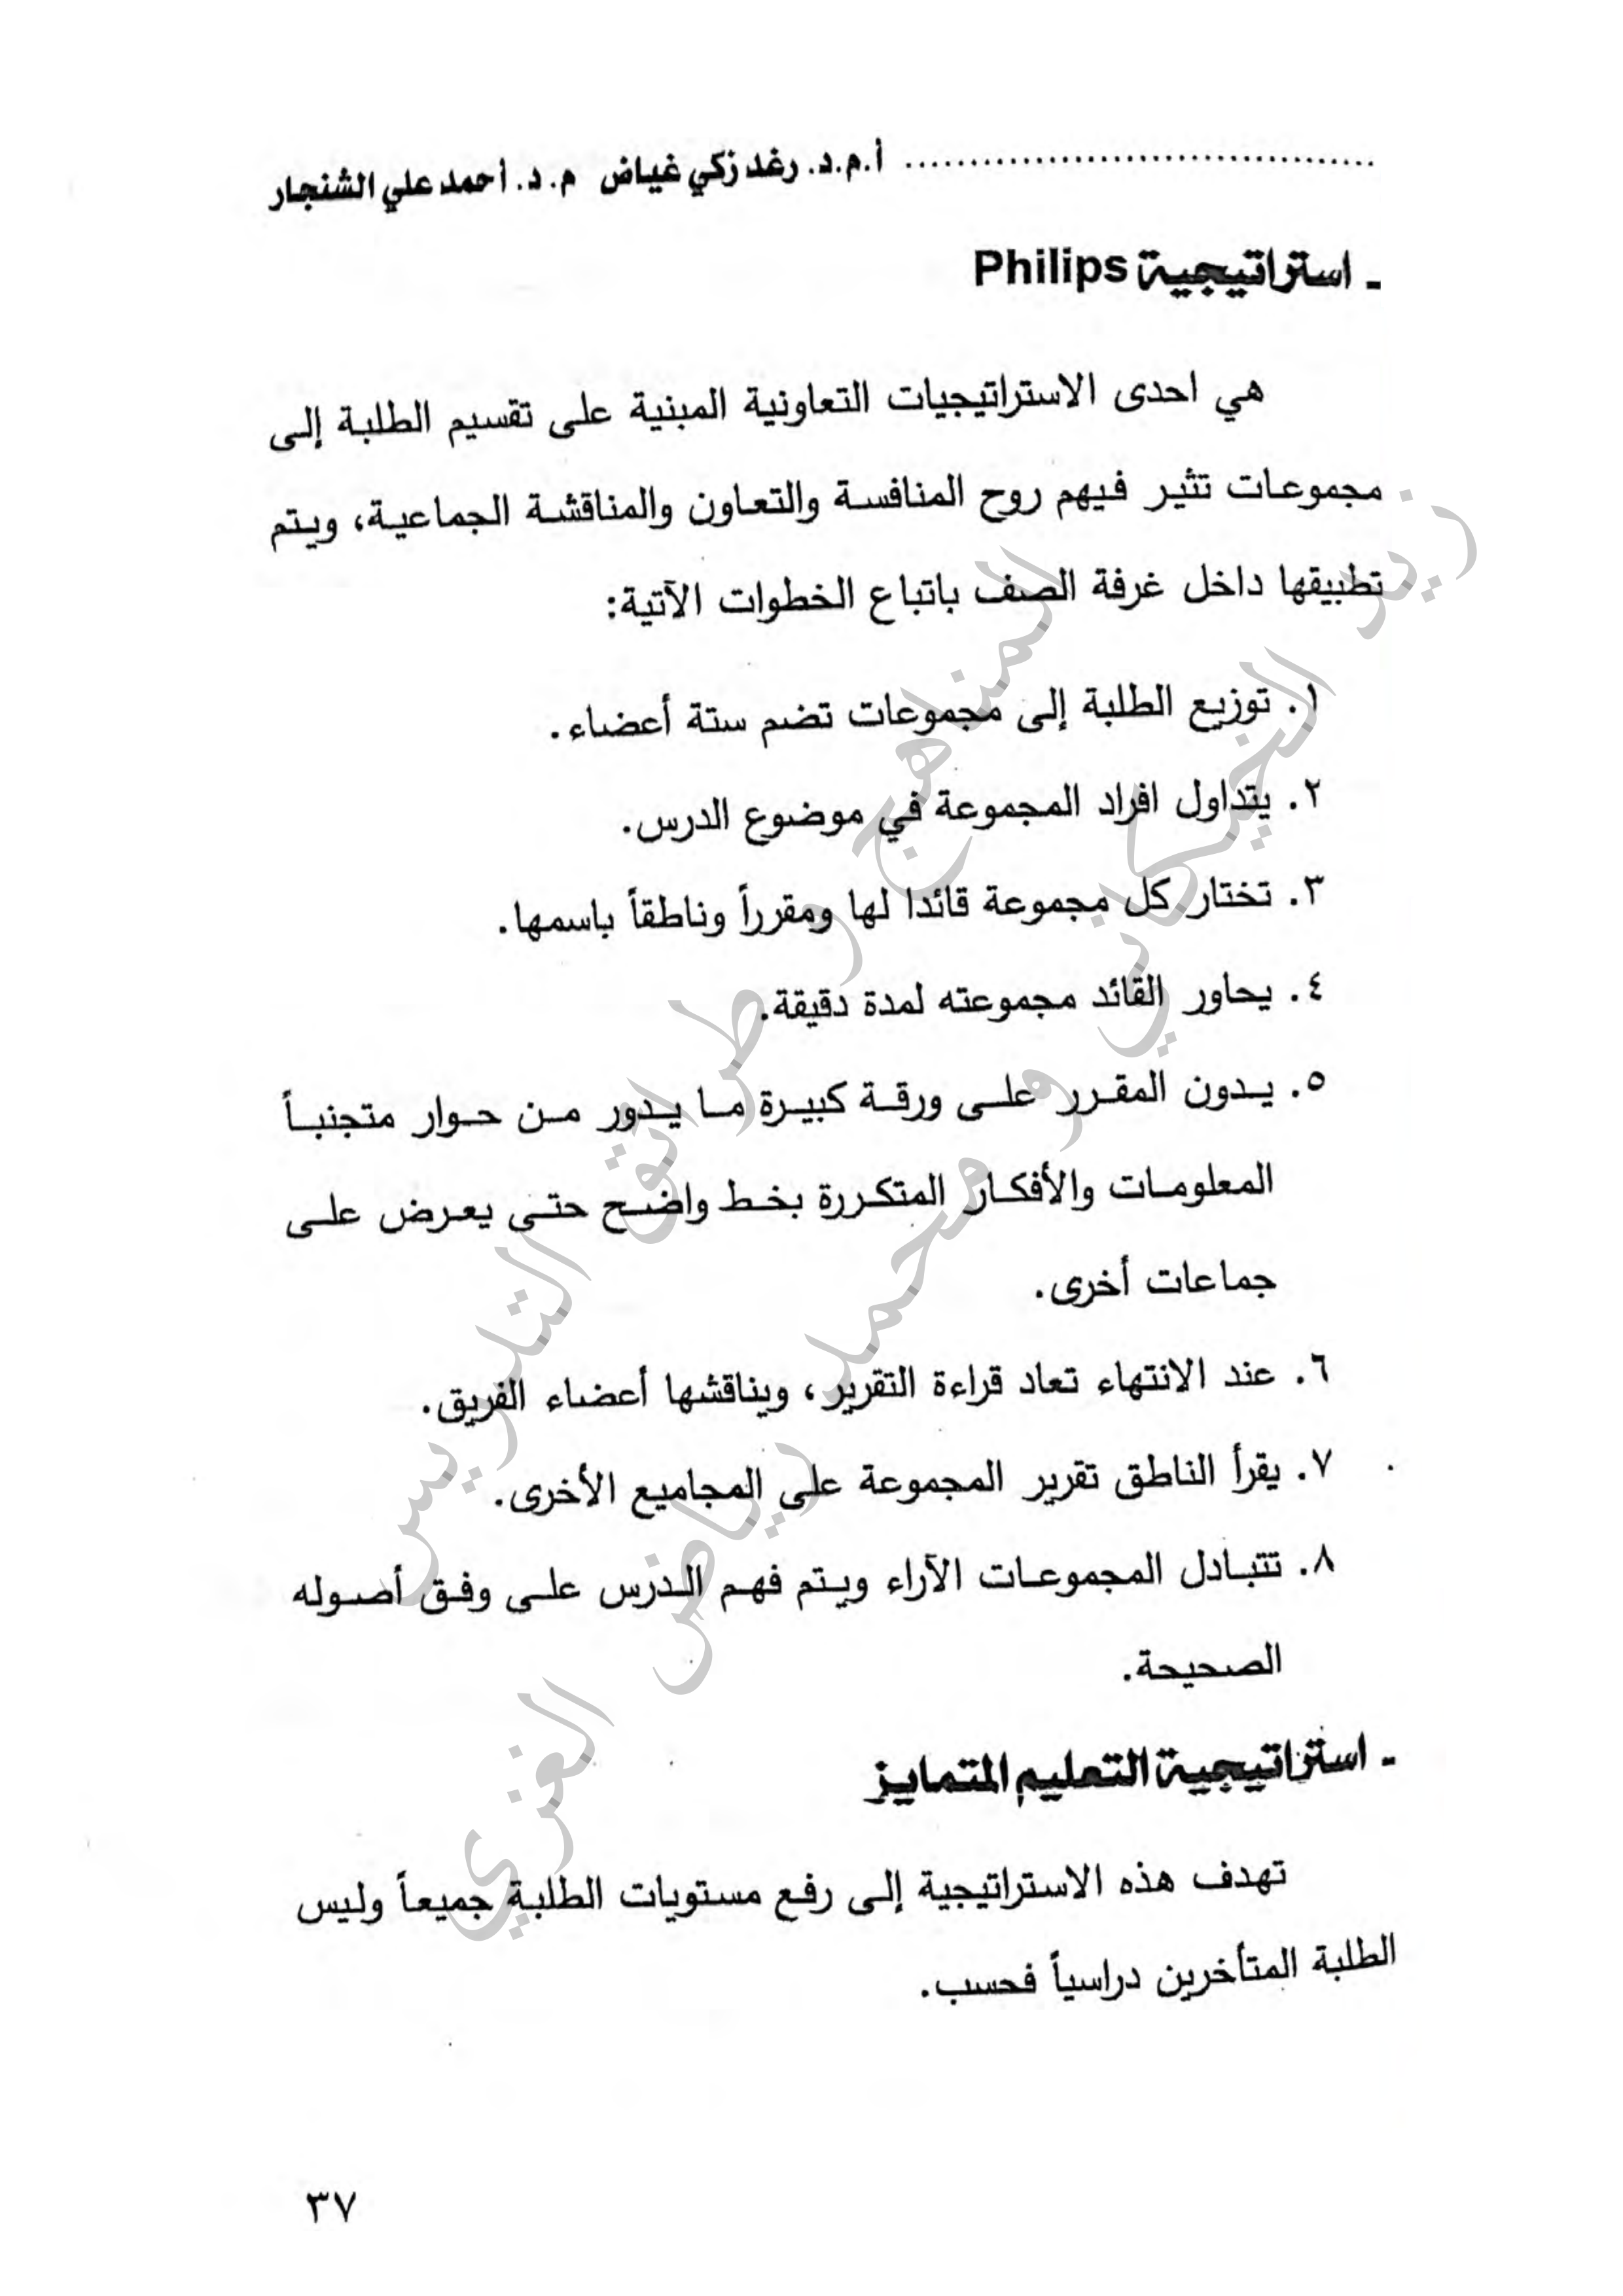 ................................ أ.م.د. رغد زكي غياض م. د. أحمد علي الشنجار
- استراتيجية Philips
هي احدى الاستراتيجيات التعاونية المبنية على تقسيم الطلبة إلى
مجموعات تثير فيهم روح المنافسة والتعاون والمناقشة الجماعية، ويتم
تطبيقها داخل غرفة الصف باتباع الخطوات الآتية:
١. توزيع الطلبة إلى مجموعات تضم ستة أعضاء.
٢. يتداول افراد المجموعة في موضوع الدرس.
٣. تختار كل مجموعة قائدا لها ومقرراً وناطقاً باسمها.
٤. يحاور القائد مجموعته لمدة دقيقة.
٥. يدون المقرر على ورقة كبيرة ما يدور من حوار متجنباً
المعلومات والأفكار المتكررة بخط واضح حتى يعرض على
جماعات أخرى.
٦. عند الانتهاء تعاد قراءة التقرير، ويناقشها أعضاء الفريق.
٧. يقرأ الناطق تقرير المجموعة على المجاميع الأخرى.
٨. تتبادل المجموعات الآراء ويتم فهم الدرس على وفق أصوله
الصحيحة.
- استراتيجية التعليم المتمايز
تهدف هذه الاستراتيجية إلى رفع مستويات الطلبة جميعاً وليس
الطلبة المتأخرين دراسياً فحسب.
٣٧
المناهج و طرائق التدريس
زيد الخيكاني و محمد رياض الغزي